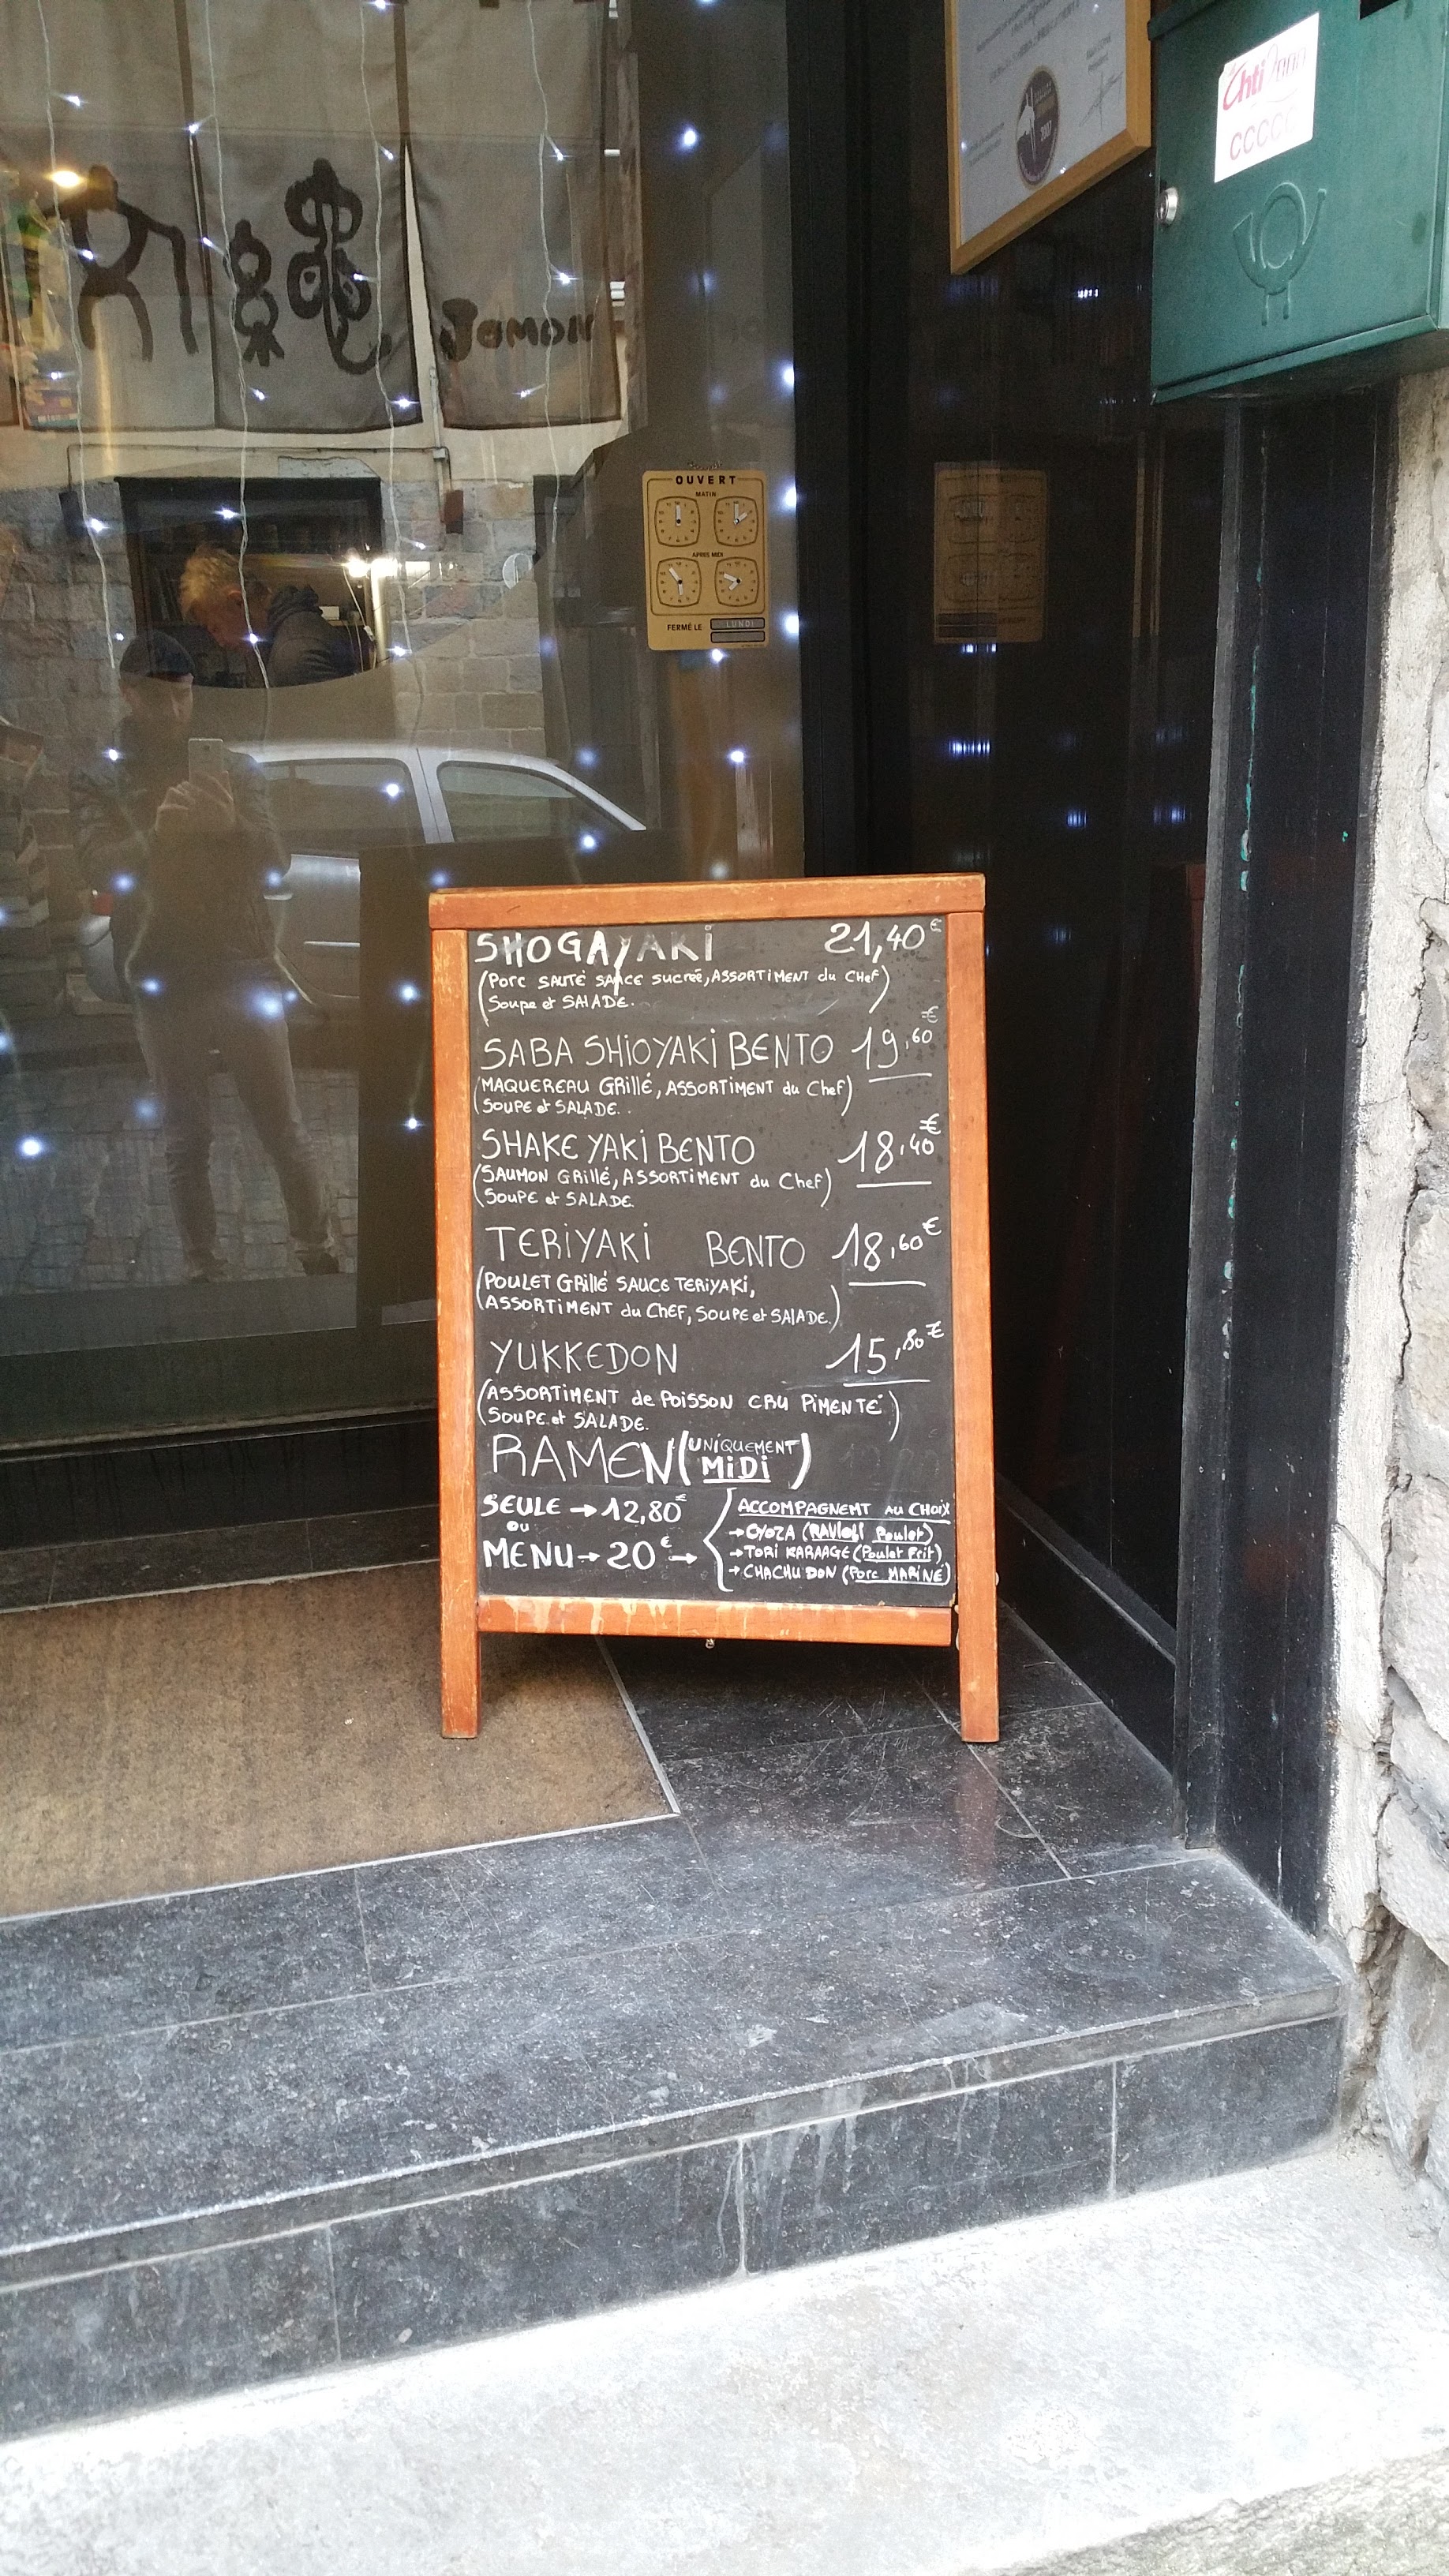 Jomon
OUVERT
MATIN
APRES MIDI
FERMÉ LE LUNDI
Chti
CCCCC
SHOGAYAKI 21,40€
(Porc SAUTÉ SAUCE sucrée, ASSORTIMENT du CHEF
Soupe et SALADE.)
SABA SHIOYAKI BENTO 19,60€
(MAQUEREAU GRILLÉ, ASSORTIMENT du Chef)
SOUPE et SALADE.
SHAKE YAKI BENTO 18,40€
(SAUMON GRILLÉ, ASSORTIMENT du Chef)
SOUPE et SALADE.
TERIYAKI BENTO 18,60€
(POULET GRILLÉ SAUCE TERIYAKI,
ASSORTIMENT du CHEF, SOUPE et SALADE.)
YUKKEDON 15,80€
(ASSORTIMENT de POISSON CRU PIMENTÉ
SOUPE et SALADE.)
RAMEN (UNIQUEMENT MIDI)
SEULE → 12,80€
ou
MENU → 20€ →
ACCOMPAGNEMT AU CHOIX
→ GYOZA (RAVIOLI Poulet)
→ TORI KARAAGE (Poulet Frit)
→ CHACHU DON (Porc MARINÉ)